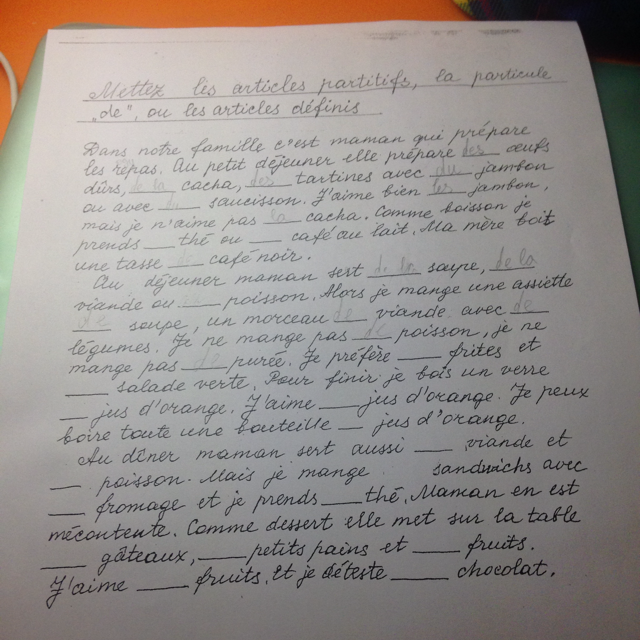 Mettez les articles partitifs, la particule
„de", ou les articles définis
Dans notre famille c'est maman qui prépare
les repas. Au petit déjeuner elle prépare des œufs
dûrs, de la cacha, des tartines avec du jambon
ou avec ___ saucisson. J'aime bien les jambon,
mais je n'aime pas la cacha. Comme boisson je
prends ___ thé ou ___ café au lait. Ma mère boit
une tasse ___ café noir.
Au déjeuner maman sert de la soupe, de la
viande ou ___ poisson. Alors je mange une assiette
de soupe, un morceau de viande avec de
légumes. Je ne mange pas de poisson, je ne
mange pas de purée. Je préfère ___ frites et
___ salade verte. Pour finir je bois un verre
___ jus d'orange. J'aime ___ jus d'orange. Je peux
boire toute une bouteille ___ jus d'orange.
Au dîner maman sert aussi ___ viande et
___ poisson. Mais je mange sandwichs avec
___ fromage et je prends ___ thé. Maman en est
mécontente. Comme dessert elle met sur la table
___ gâteaux, ___ petits pains et ___ fruits.
J'aime ___ fruits. Et je déteste ___ chocolat.